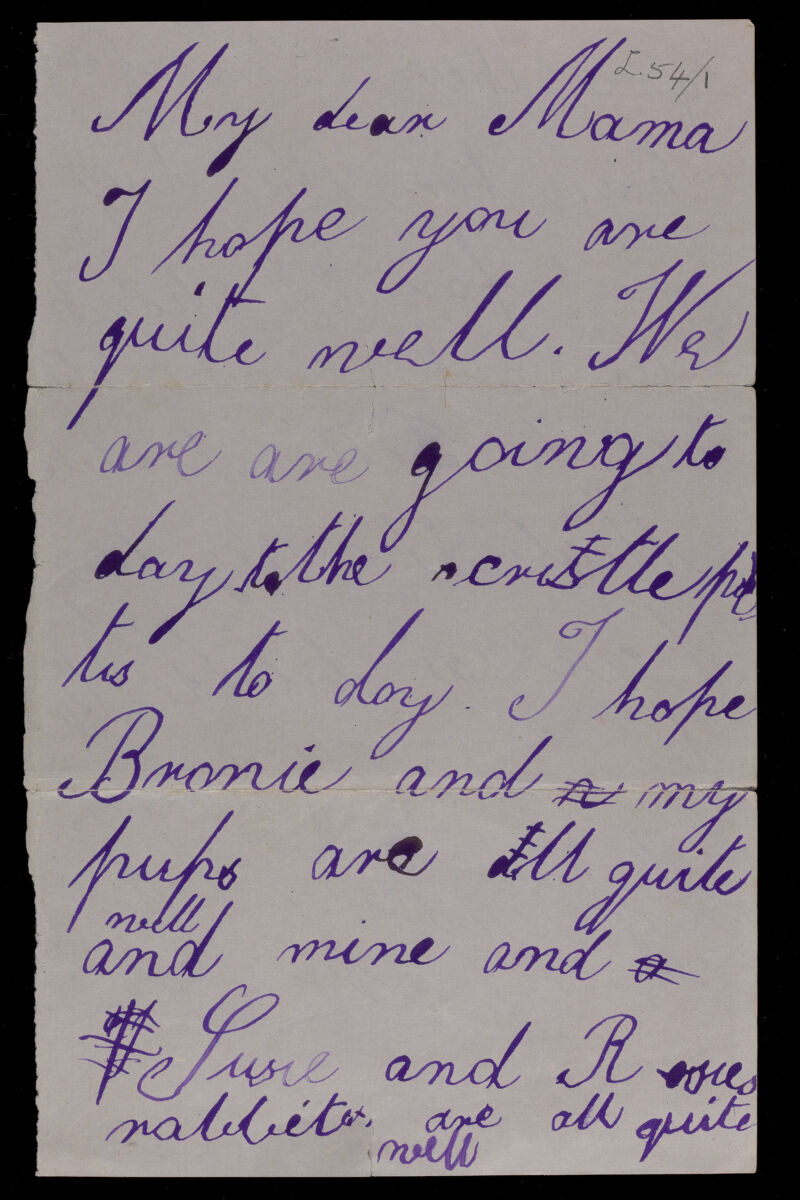 L.54/1
My dear Mama
I hope you are
quite well. We
are are going to
day to the cristle
tis to day. I hope
Bronie and my
pups are all quite
well
and mine and
Susie and Rosies
rabbits are all quite
well